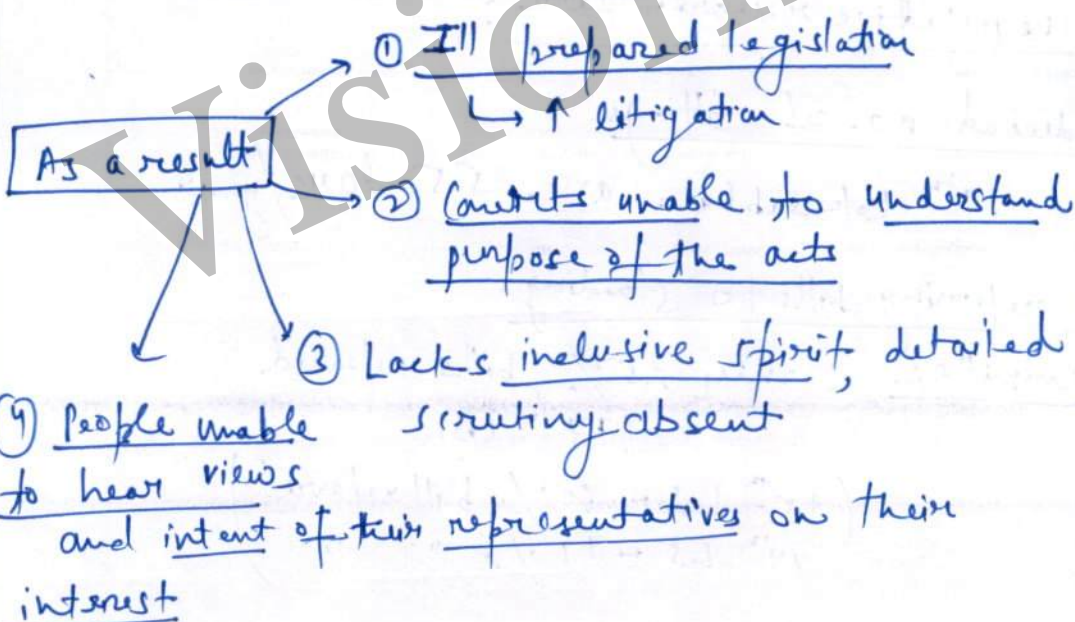 ① Ill prepared legislation
↳ ↑ litigation
As a result
② Courts unable to understand
purpose of the acts
③ Lacks inclusive spirit, detailed
scrutiny absent
④ People unable
to hear views
and intent of their representatives on their
interest
Vision